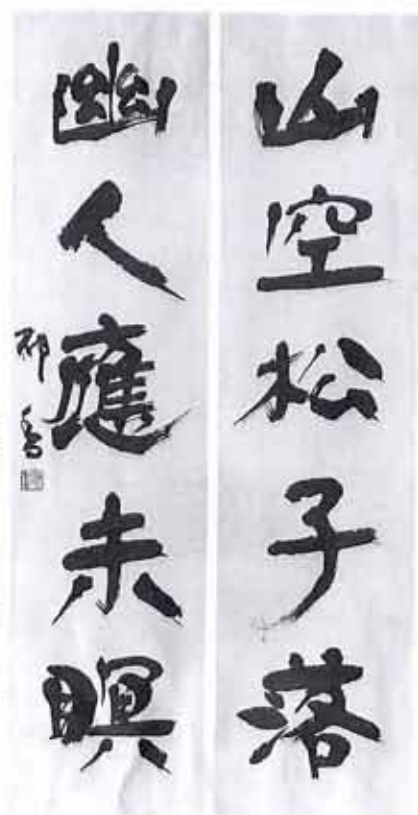 山空松子落
幽人應未瞑